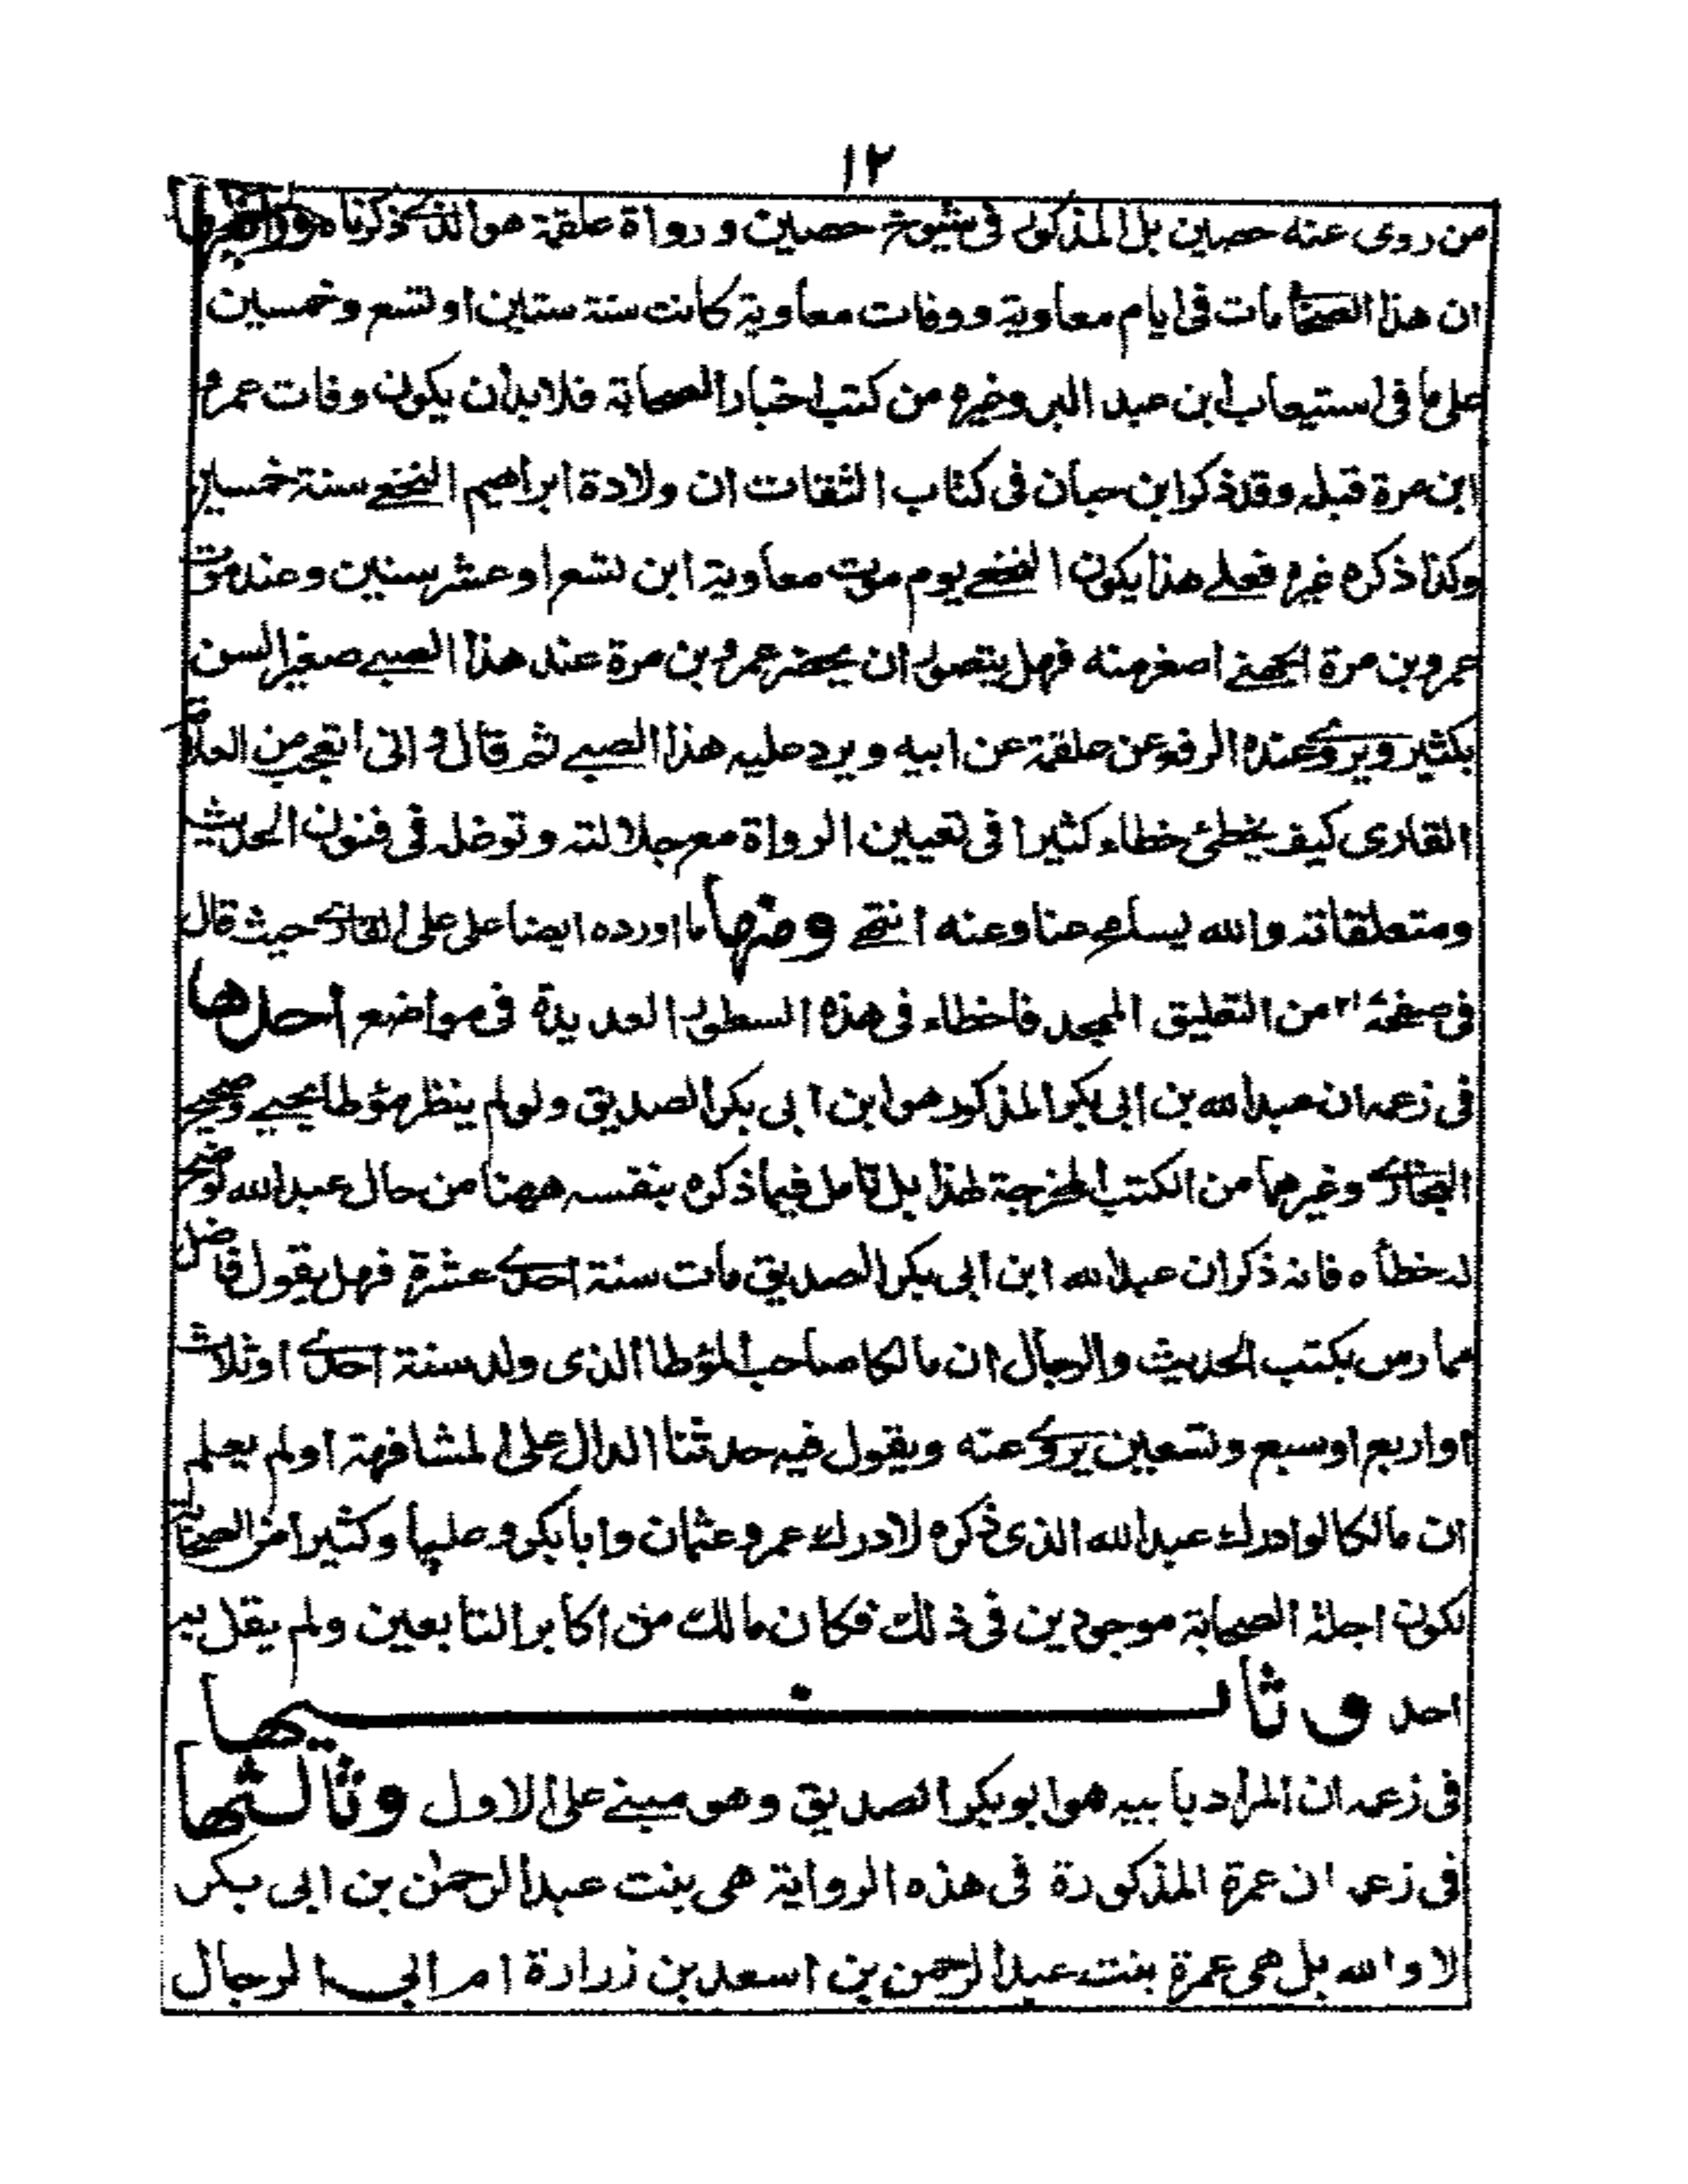 ١٢
من روى عنه حصين بل المذكور في شيوخ حصين ورواة علقمة هو الذي ذكرناه
ان هذا الصحابي مات في ايام معاوية ووفات معاوية كانت سنة ستين او تسع وخمسين
على ما في استيعاب ابن عبد البر وغيره من كتب اخبار الصحابة فلابد ان يكون وفات عمرو
ابن مرة قبله وقد ذكر ابن حبان في كتاب الثقات ان ولادة ابراهيم النخعي سنة خمسين
وكذا ذكره غيره فعلى هذا يكون النخعي يوم موت معاوية ابن تسع او عشر سنين وعند موت
عمرو بن مرة الجهني اصغر منه فهل يتصور ان يحضر عمرو بن مرة عند هذا الصبي صغير السن
بكثير ويروي عنده الرفع عن علقمة عن ابيه ويرد عليه هذا الصبي ثم قال و انى اتعجب من العلامة
القارى كيف يخطئ خطاء كثيرا فى تعيين الرواة مع جلالته وتوغله فى فنون الحديث
ومتعلقاته والله يسامح عنا وعنه انتهى ومنها ما اورده ايضا على على القارى حيث قال
فى صفحة ٢١ من التعليق الممجد فاخطاء فى هذه السطور العديدة فى مواضع احدها
فى زعمه ان عبد الله بن ابى بكر المذكور هو ابن ابى بكر الصديق ولو لم ينظر مؤطا يحيى وصحيح
البخارى وغيرهما من الكتب المخرجة لهذا بل تامل فيما ذكره بنفسه ههنا من حال عبد الله لوضح
له خطأه فانه ذكر ان عبد الله ابن ابى بكر الصديق مات سنة احدى عشرة فهل يقول فاضل
ممارس بكتب الحديث والرجال ان مالكا صاحب المؤطا الذى ولد سنة احدى او ثلاث
او اربع او سبع وتسعين يروى عنه ويقول فيه حدثنا الدال على المشافهة او لم يعلم
ان مالكا لو ادرك عبد الله الذى ذكره لادرك عمر وعثمان وابا بكر وعليها وكثيرا من الصحابة
لكون اجلة الصحابة موجودين فى ذلك فكان مالك من اكابر التابعين ولم يقل به
احد وثانيها
فى زعمه ان المراد بابيه هو ابو بكر الصديق وهو مبنى على الاول وثالثها
فى زعمه ان عمرة المذكورة فى هذه الرواية هى بنت عبد الرحمن بن ابى بكر
لا والله بل هى عمرة بنت عبد الرحمن بن اسعد بن زرارة ام ابى الرجال